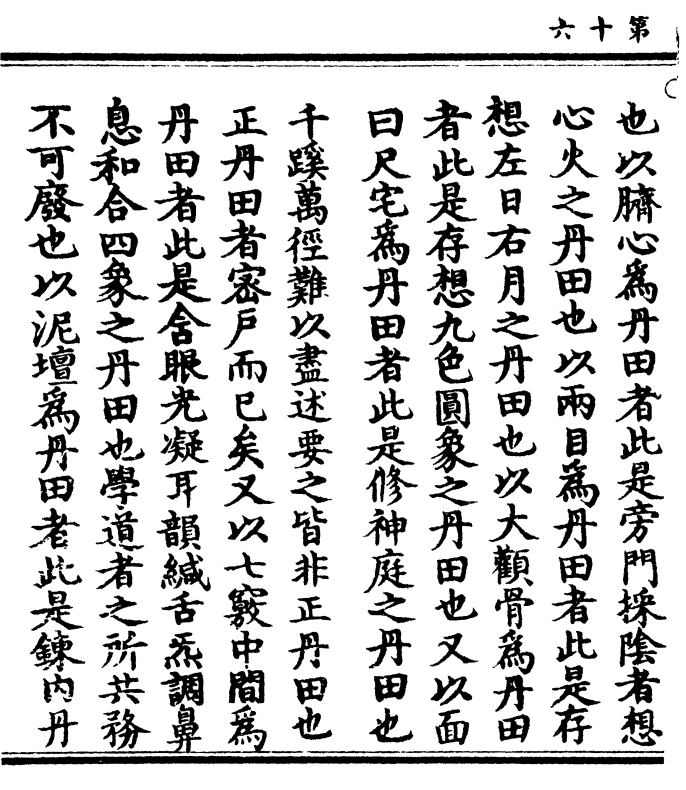 第十六
也以臍心爲丹田者此是旁門採陰者想
心火之丹田也以兩目爲丹田者此是存
想左日右月之丹田也以大顴骨爲丹田
者此是存想九色圓象之丹田也又以面
曰尺宅爲丹田者此是修神庭之丹田也
千蹊萬徑難以盡述要之皆非正丹田也
正丹田者密戶而已矣又以七竅中間爲
丹田者此是含眼光凝耳韻緘舌炁調鼻
息和合四象之丹田也學道者之所共務
不可廢也以泥壇爲丹田者此是鍊內丹